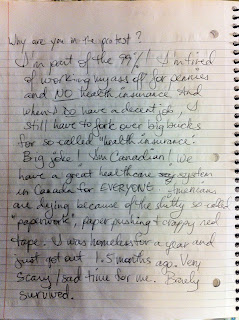 Why are you in the protest?
I'm part of the 99%! I'm tired
of working my ass off for pennies
and NO health insurance. And
when I do have a decent job, I
still have to fork over big bucks
for so-called "health insurance.
Big joke! I'm Canadian! We
have a great healthcare system
in Canada for EVERYONE. Americans
are dying because of the shitty so called
"paperwork", paper pushing & crappy red
tape. I was homeless for a year and
just got out 1.5 months ago. Very
scary/sad time for me. Barely
survived.